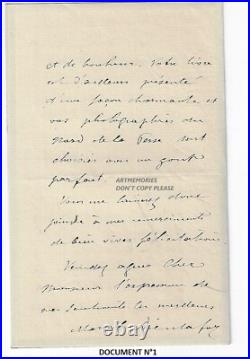 et de bonheur. Votre livre
est d'ailleurs présenté
d'une façon charmante et
vos photographies du
Nord de la Perse sont
choisies avec un goût
parfait.
ARTMEMORIES
DON'T COPY PLEASE
Vous me laisserez donc
joindre à mes remerciements
de bien vives félicitations.
Veuillez agréer Cher
Monsieur l'expression de
mes sentiments les meilleurs
DOCUMENT N°1